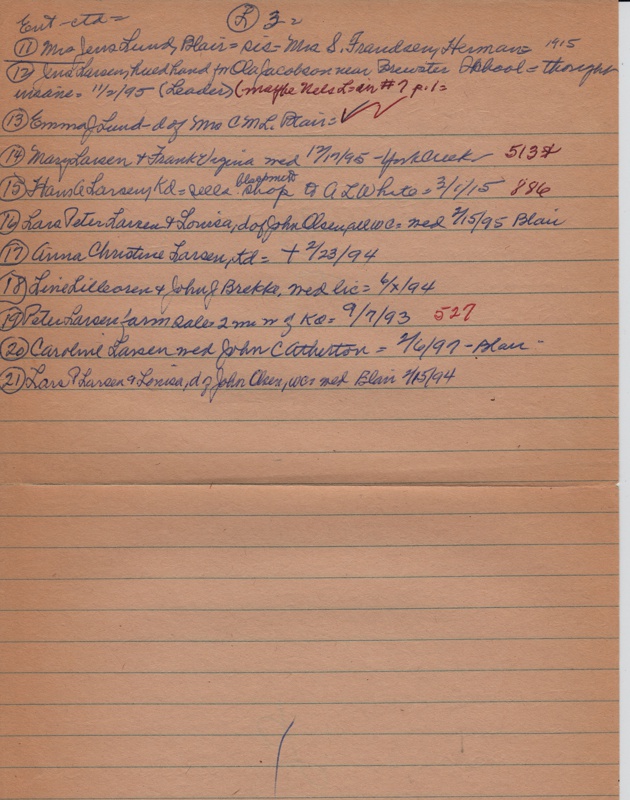 Ent-ctd = (L) 3 =
(11) Mrs Jens Lund, Blair = sis = Mrs S. Frandsen, Herman = 1915
(12) Jens Larsen, hired hand for Ola Jacobson near Brewster = thought
insane = 11/2/95 (Leader) (maybe Nels L = an #7 p. 1 =
(13) Emma J Lund - d of Mrs C M L. Blair = ✓
(14) Mary Larsen & Frank Vegina wed 12/17/95 - York Creek 513
(15) Hans C Larsen, Kd = sells blacpmett shop to A L White = 3/1/15 886
(16) Lars Peter Larsen & Louisa, d of John Olsen, all wc = wed 2/15/95 Blair
(17) Anna Christine Larsen, Kd = † 2/23/94
(18) Line Lilleoren & John J Brekke, wed lic = 6/x/94
(19) Peter Larsen farm sale = 2 mi w of Kd = 9/7/93 527
(20) Caroline Larsen wed John C Atherton = 2/6/97 - Blair -
(21) Lars P Larsen & Louisa, d of John Olsen, wc = wed Blair 2/15/94